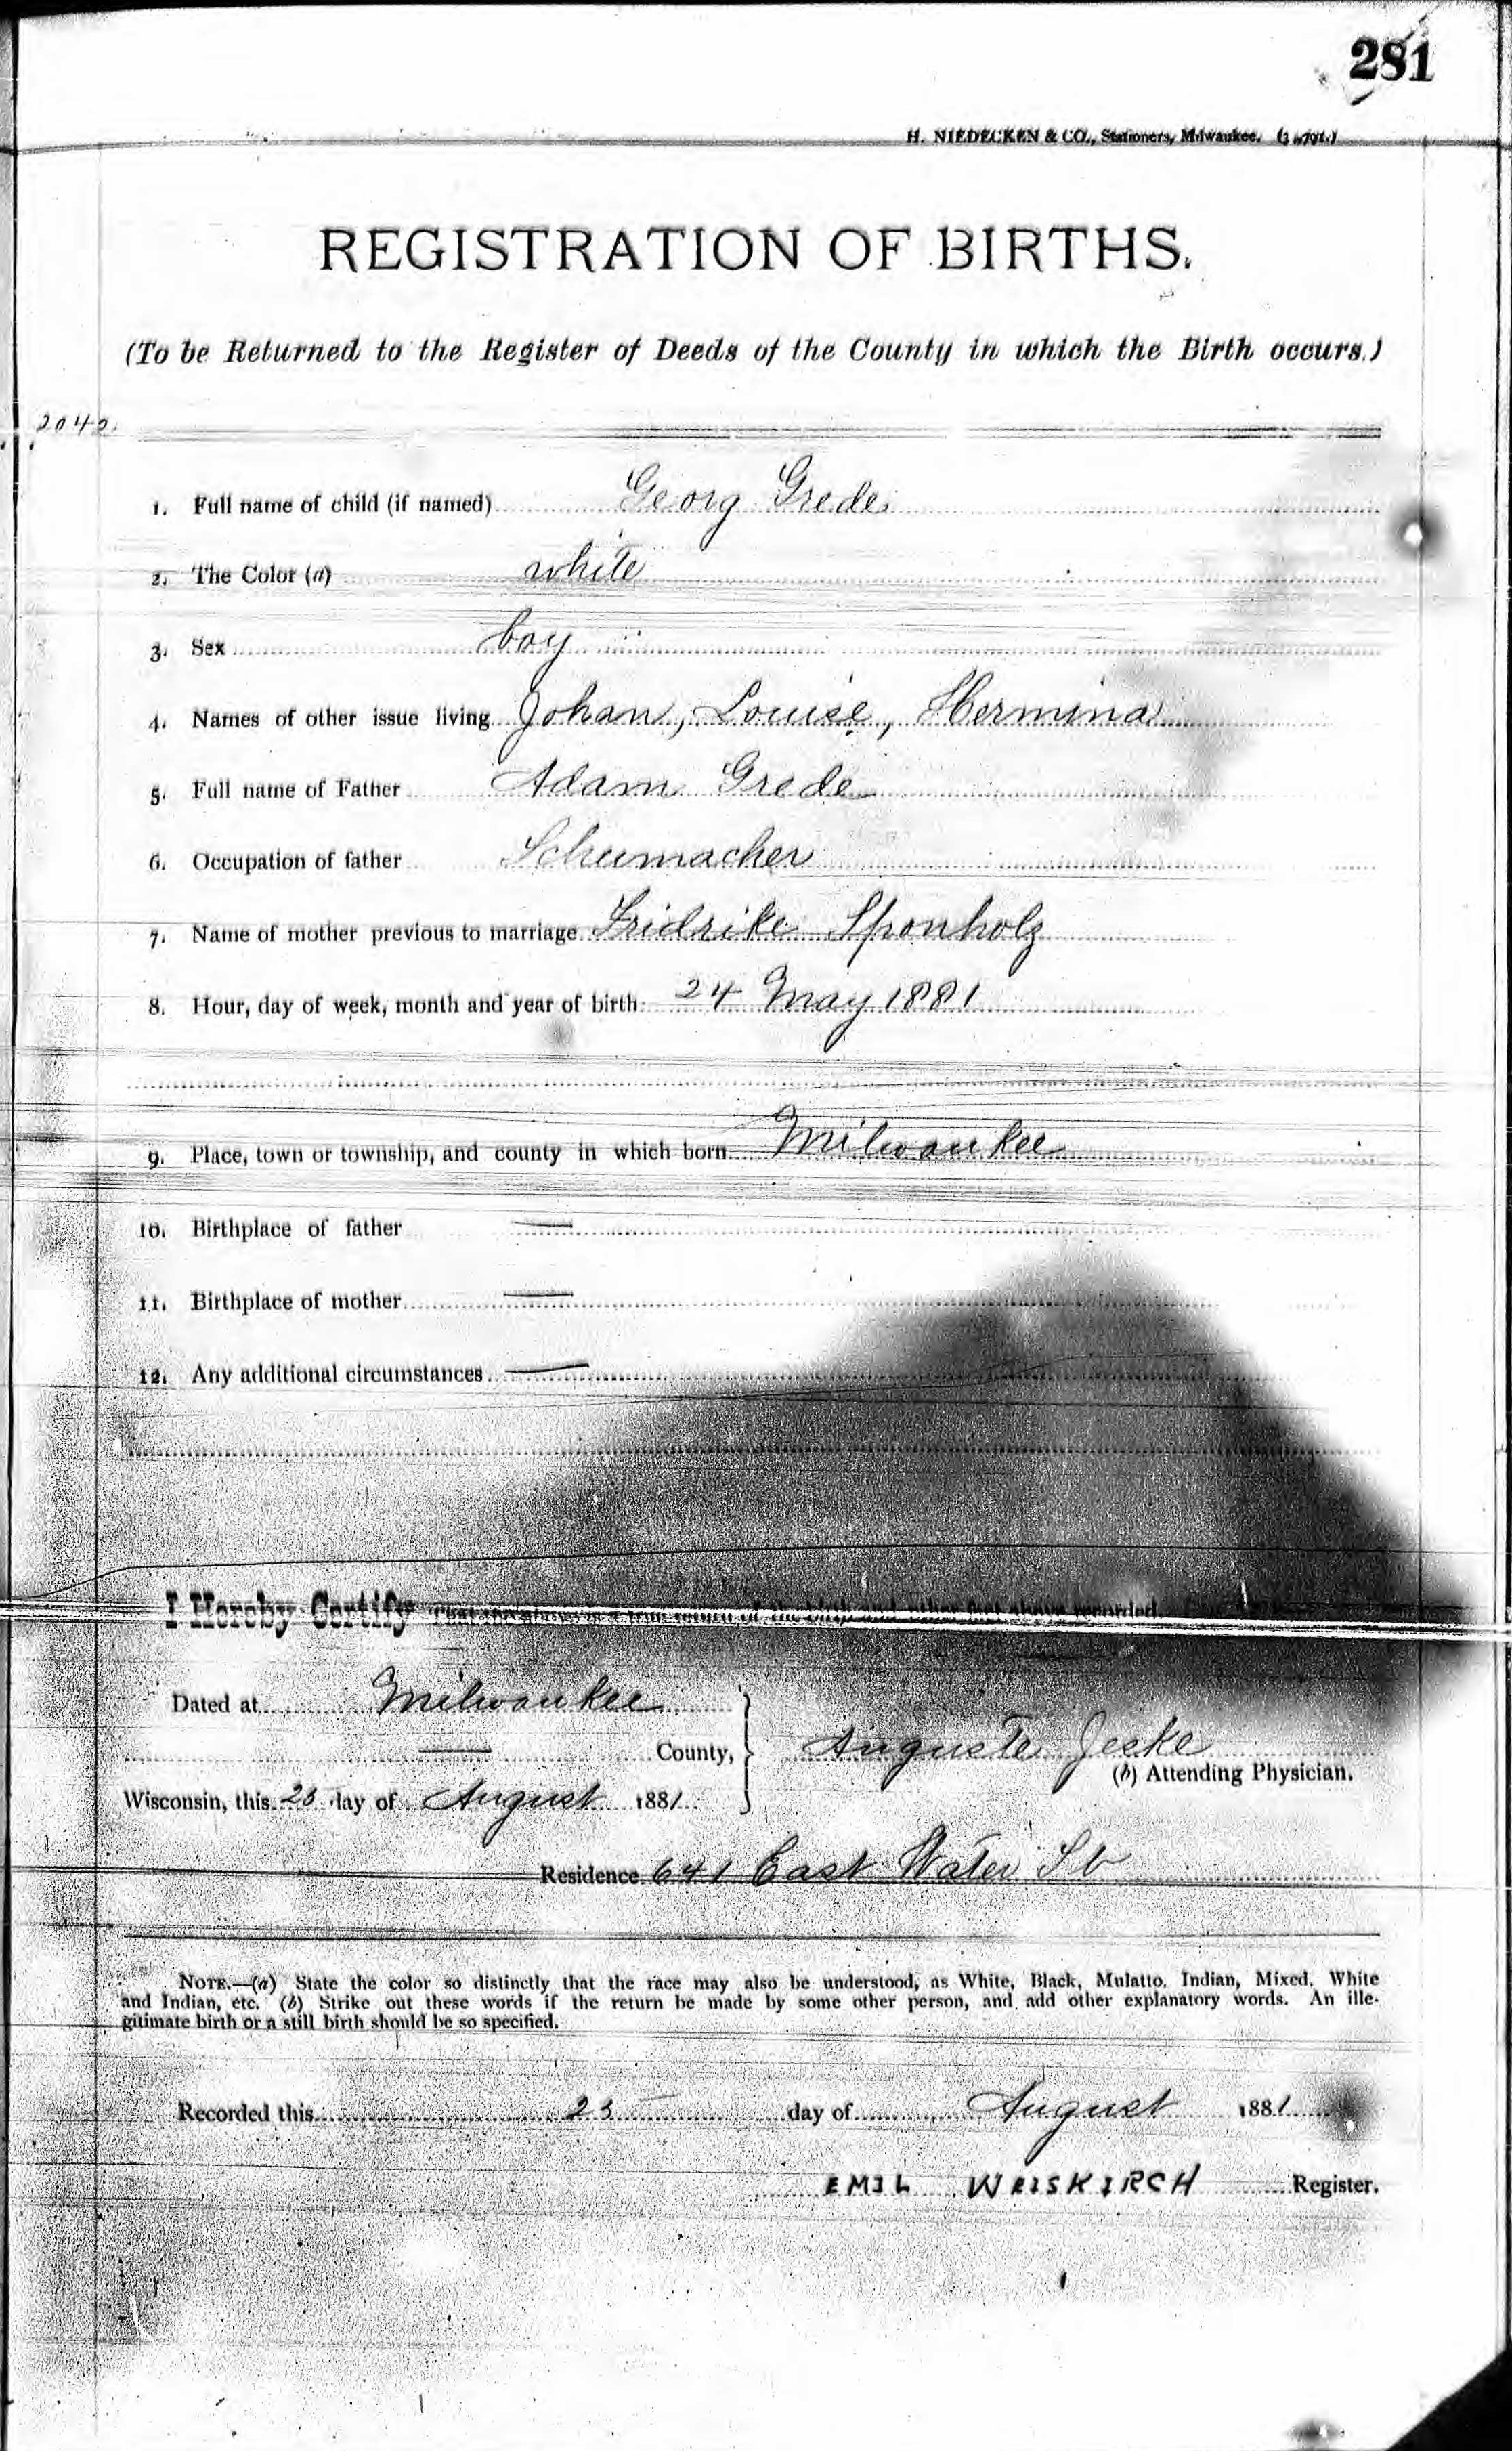 281
H. NIEDECKEN & CO., Stationers, Milwaukee.
REGISTRATION OF BIRTHS.
(To be Returned to the Register of Deeds of the County in which the Birth occurs.)
2042.
1. Full name of child (if named) Georg Grede
2. The Color (a) white
3. Sex boy
4. Names of other issue living Johan, Louise, Hermina
5. Full name of Father Adam Grede
6. Occupation of father Schumacher
7. Name of mother previous to marriage Fridrike Sponholz
8. Hour, day of week, month and year of birth 24 May 1881
9. Place, town or township, and county in which born Milwaukee
10. Birthplace of father —
11. Birthplace of mother —
12. Any additional circumstances —
I Hereby Certify That the above is a true return of the birth and other fact above recorded
Dated at Milwaukee
— County,
Auguste Jeske
(b) Attending Physician.
Wisconsin, this 23 day of August 1881
Residence 641 East Water St
NOTE.—(a) State the color so distinctly that the race may also be understood, as White, Black, Mulatto, Indian, Mixed, White
and Indian, etc. (b) Strike out these words if the return be made by some other person, and add other explanatory words. An ille-
gitimate birth or a still birth should be so specified.
Recorded this 23 day of August 1881
EMIL WEISKIRCH Register.